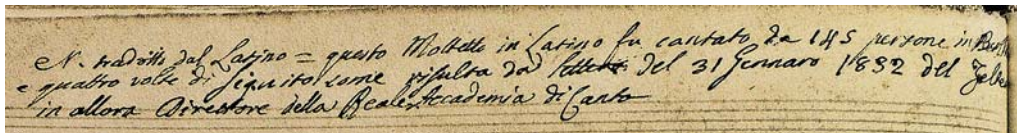 N. tradotto dal Latino = questo Mottetto in Latino fu cantato da 145 persone in
e quattro volte di seguito come risulta da lettera del 31 Gennaro 1832 del Zelter
in allora Direttore della Reale Accademia di Canto